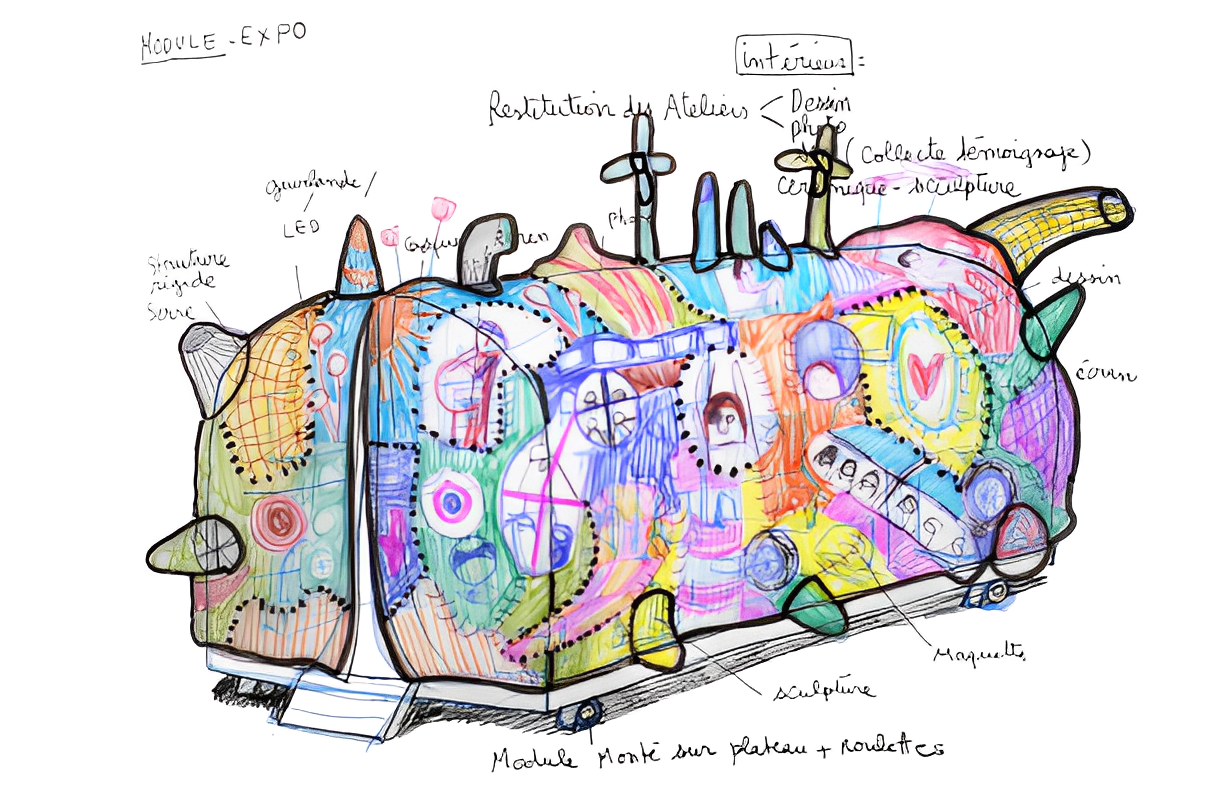 MODULE - EXPO
intérieur :
Restitution des Ateliers < Dessin
photo
(Collecte témoignage)
céramique - sculpture
guirlande /
LED
Structure
rigide
Serre
dessin
écran
Maquette
sculpture
Module Monté sur plateau + roulettes